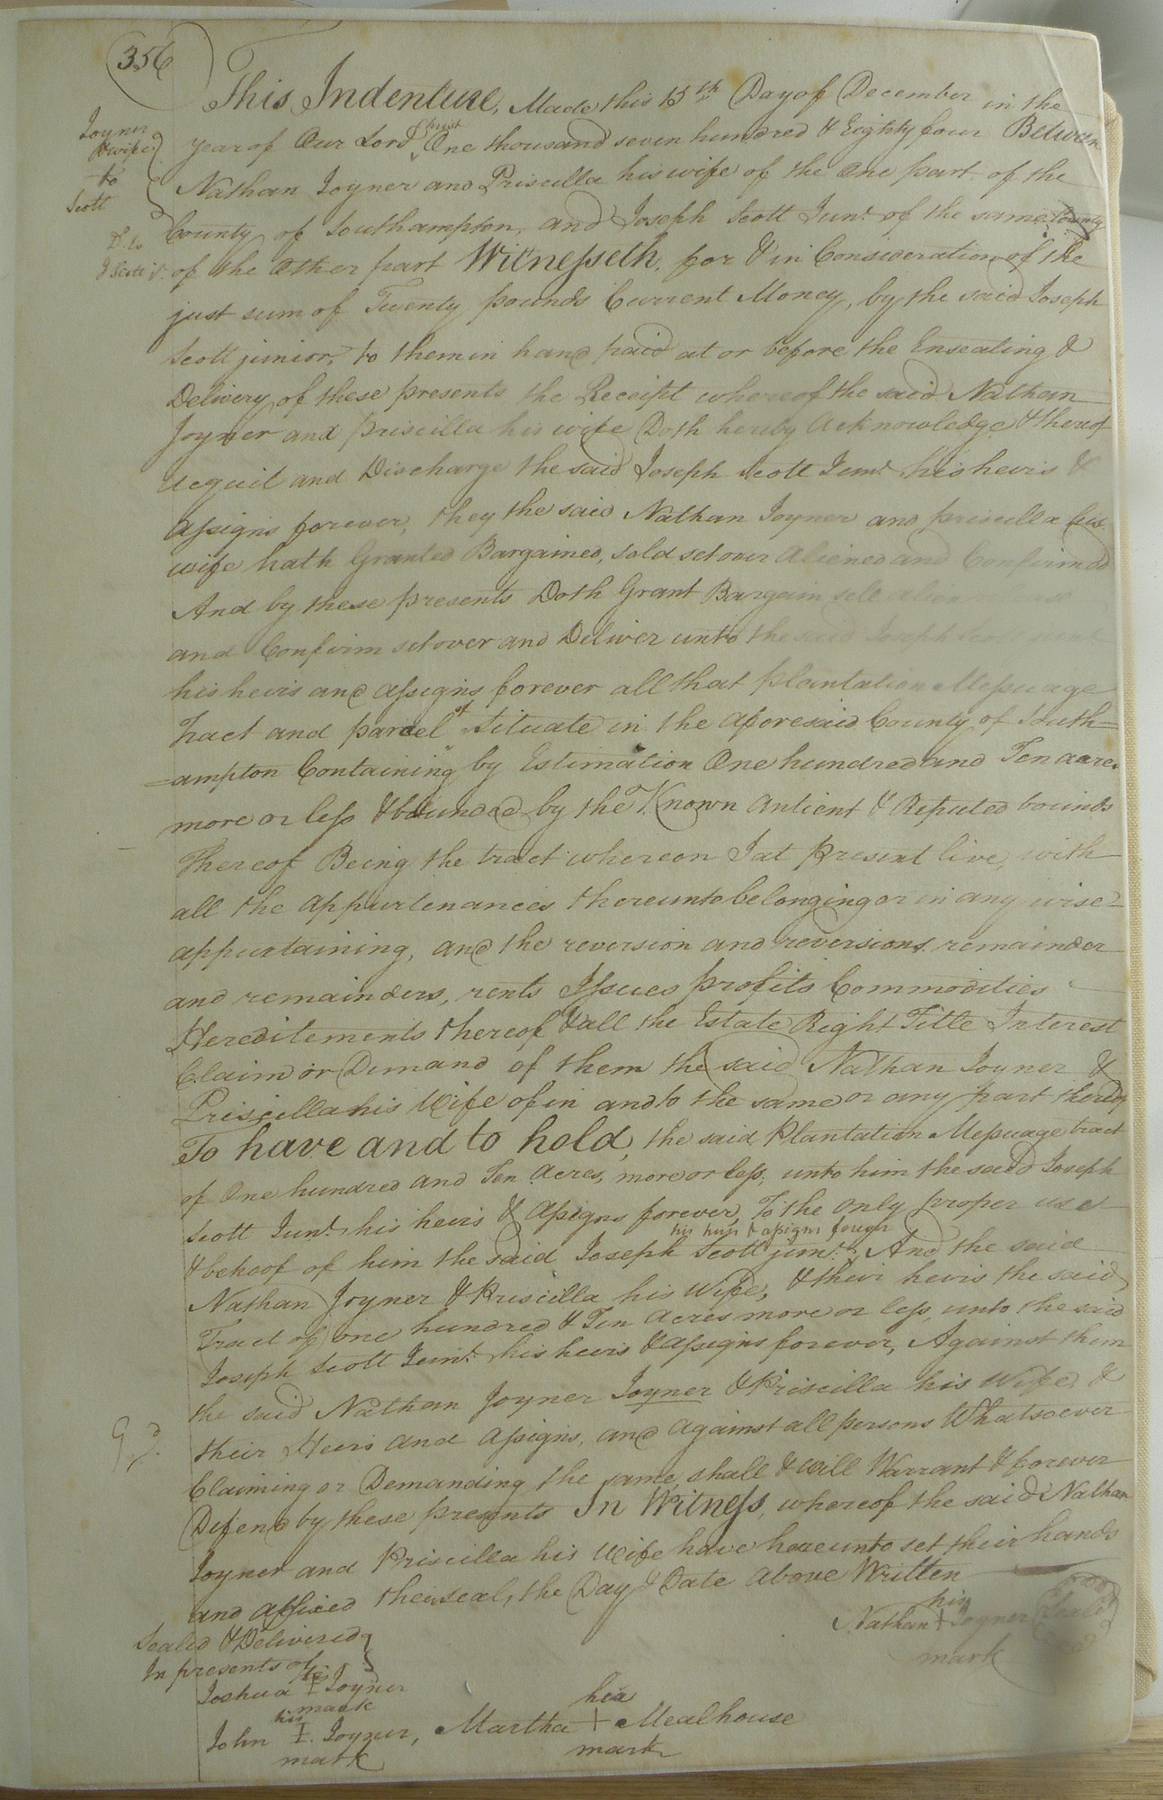 356
Joyner
& wife
to
Scott
This Indenture, Made this 15th Day of December in the
year of Our Lord Christ One thousand seven hundred & Eighty four Between
Nathan Joyner and Priscilla his wife of the One part of the
County of Southampton, and Joseph Scott Junr. of the same County
of the Other part Witnesseth, for & in Consideration of the
just sum of Twenty pounds Current Money, by the said Joseph
Scott junior, to them in hand paid at or before the Ensealing &
Delivery of these presents the Receipt whereof the said Nathan
Joyner and Priscilla his wife Doth hereby Acknowledge & thereof
Acquit and Discharge the said Joseph Scott Junr. his heirs &
Assigns forever, they the said Nathan Joyner and priscilla his
wife hath Granted Bargained, sold set over Aliened and Confirmed
And by these presents Doth Grant Bargain sell alien
and Confirm set over and Deliver unto the said Joseph
his heirs and assigns forever all that plantation Messuage
Tract and parcel of Situate in the aforesaid County of South=
=ampton Containing by Estimation One hundred and Ten acres
more or less & bounded by the Known Antient & Reputed bounds
Thereof Being the tract whereon I at Present live, with
all the appurtenances thereunto belonging or in any wise
appurtaining, and the reversion and reversions remainder
and remainders, rents Issues profits Commodities
Hereditements thereof & all the Estate Right Title Interest
Claim or Demand of them the said Nathan Joyner &
Priscilla his Wife of in and to the same or any part thereof
To have and to hold, the said Plantation Messuage tract
of One hundred and Ten Acres, more or less, unto him the said Joseph
Scott Junr. his heirs & Assigns forever, To the only proper use
& behoof of him the said Joseph Scott junr. his heirs & assigns forever And the said
Nathan Joyner & Priscilla his Wife, & their heirs the said
Tract of one hundred & Ten Acres more or less, unto the said
Joseph Scott Junr. his heirs & Assigns forever, Against them
the said Nathan Joyner Joyner & Priscilla his Wife &
their Heirs and Assigns, and Against all persons Whatsoever
Claiming or Demanding the same, shall & will Warrant & forever
Defend by these presents In Witness, whereof the said Nathan
Joyner and Priscilla his Wife have hereunto set their hands
and affixed their seal, the Day & Date above Written
his
Nathan + Joyner (Seal)
mark
Sealed & Delivered
In presents of
his
Joshua I Joyner
mark
his her
John I. Joyner, Martha + Mealhouse
mark mark